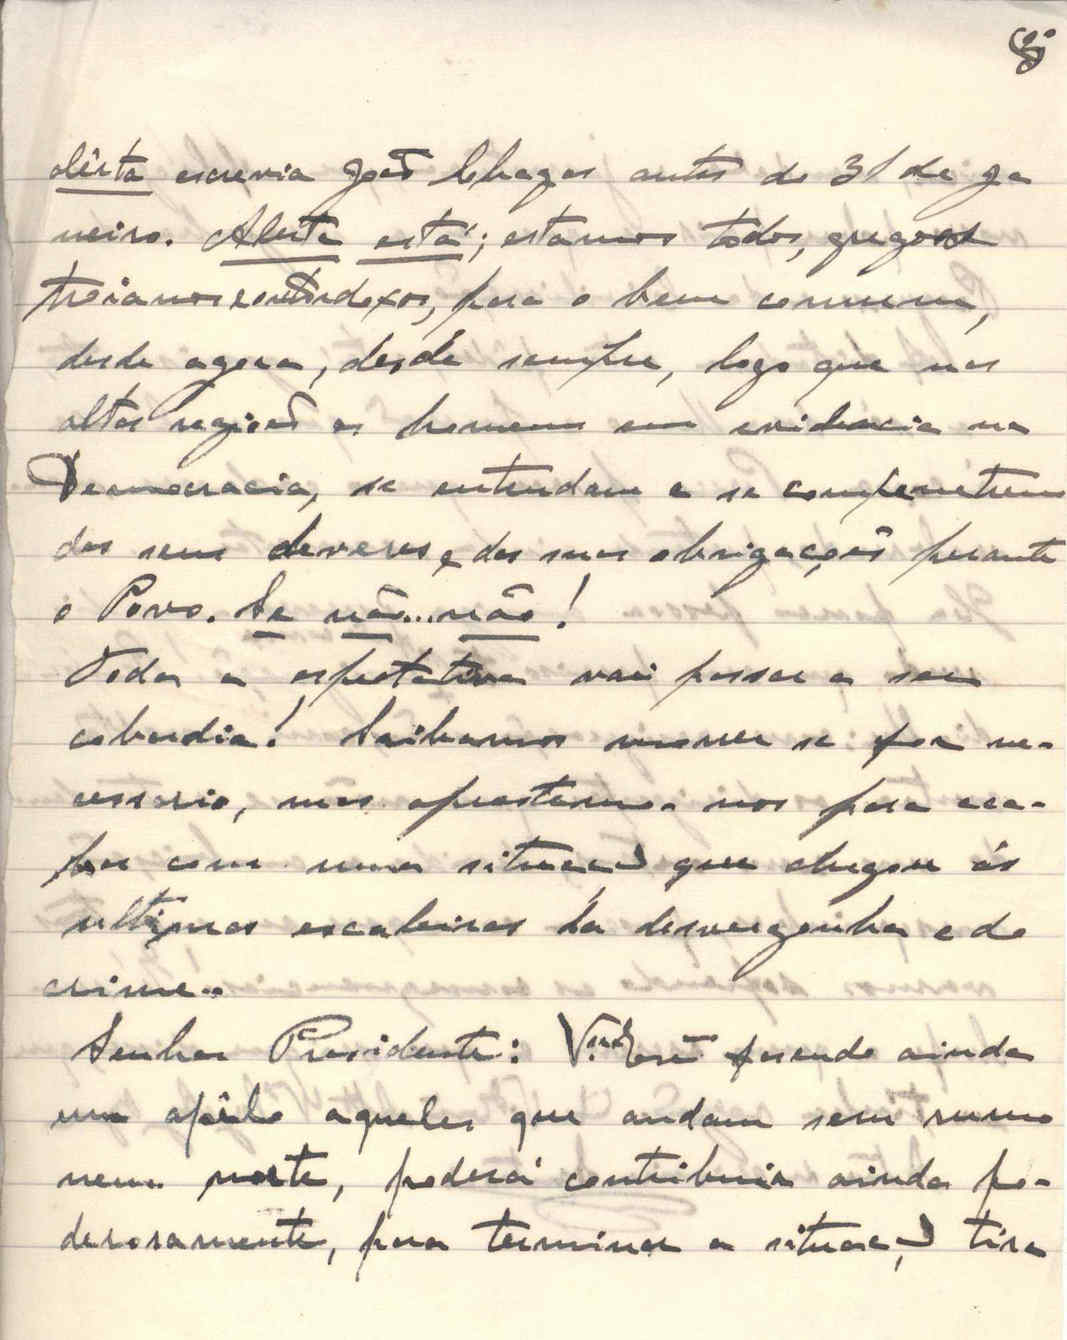 8
alêrta escrevia João Chagas antes do 31 de Ja
neiro. Alerta está; estamos todos, gregos
troianos e ortodoxos, para o bem commum,
desde agora, desde sempre, logo que nas
altas regiões os homens em evidencia na
Democracia, se entendam e se compenetrem
dos seus deveres e das suas obrigações perante
o Povo. Se não... não!
Toda a espectativa vai passar a ser
cobardia! Saibamos morrer se for ne-
cessario, mas aprestemo-nos para aca-
bar com uma situação que chegou ás
ultimas escaleiras da desvergonha e do
crime..
Senhor Presidente: V. Excia fasendo ainda
um apêlo aqueles que andam sem rumo
nem norte, poderá contribuir ainda po-
derosamente, para terminar a situação tira